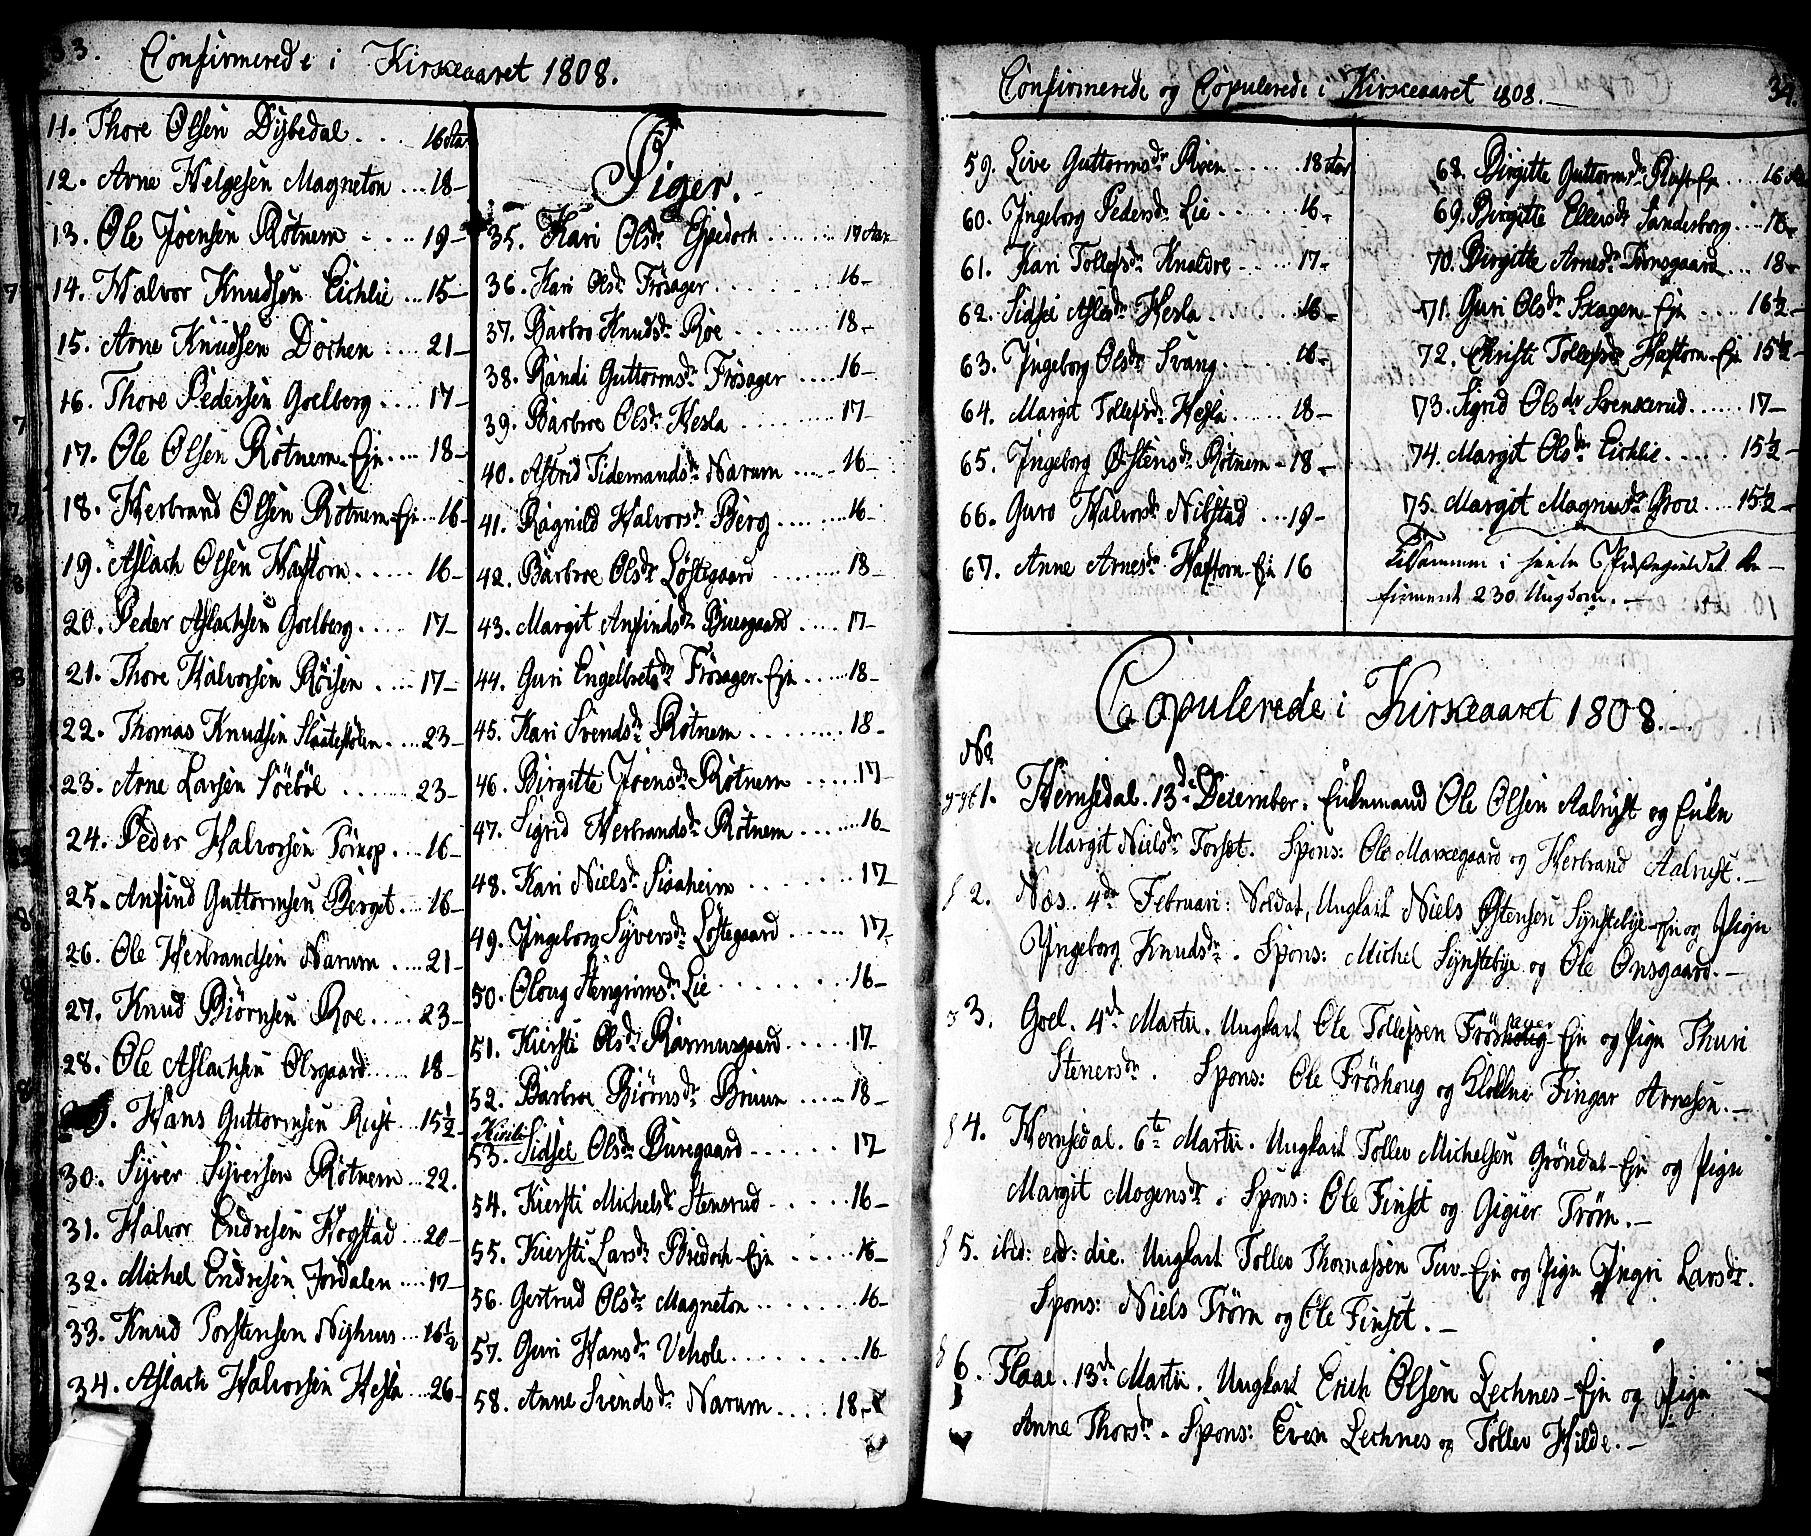 33.
Confirmerede i Kirkeaaret 1808.
11. Thore Olsen Dybedal . . . . 16 Aar
12. Arne Helgesen Magneton ... 18 -
13. Ole Joensen Rotnem . . . . 19 -
14. Halvor Knudsen Eichlie ... 15 -
15. Arne Knudsen Dochen .... 21 -
16. Thore Pedersen Goelberg .... 17 -
17. Ole Olsen Rotnem-Eje .... 18 -
18. Herbrand Olsen Rotnem-Eje ... 16 -
19. Aslach Olsen Haftorn ..... 16 -
20. Peder Aslachsen Goelberg ..... 17 -
21. Thore Halvorsen Röisen ..... 17 -
22. Thomas Knudsen Slaatestølen .... 23 -
23. Arne Larsen Söeböl ....... 23 -
24. Peder Halvorsen . 16 -
25. Anfind Guttormsen Berget .... 16 -
26. Ole Herbrandsen Narum .... 21 -
27. Knud Biörnsen Roe ..... 23 -
28. Ole Aslachsen Olsgaard ..... 18 -
29. Hans Guttormsen Rust ... 15½ -
30. Syver Syversen Rotnem ... 22.
31. Halvor Endresen Hogstad ... 20 -
32. Michel Endresen Jordalen ..... 17 -
33. Knud Torstensen Nyhuus ... 16½
34. Aslach Halvorsen Hesla ... 26 -
Piger.
35. Kari Olsdr Espedoch ....... 17 Aar
36. Kari Olsdr Frösager ......... 16 -
37. Barbro Knudsdr Roe ......... 18 -
38. Randi Guttormsdr Frösager ..... 16 -
39. Barbroe Olsdr Hesla ........ 17 -
40. Astrid Tidemandsdr Narum ..... 16 -
41. Ragnild Halvorsdr Berg ...... 16 -
42. Barbroe Olsdr Löstegaard ....... 18 -
43. Margit Anfindsdr Buregaard ..... 17 -
44. Guri Engelbretsdr Frösager-Eje ..... 18 -
45. Kari Svendsdr Rotnem ........ 18 -
46. Birgitte Joensdr Rotnem ...... 17
47. Sigrid Herbrandsdr Rotnem ...... 16 -
48. Kari Nielsdr Siaaheim ........ 17
49. Ingeborg Syversdr Löstegaard ...... 17 -
50. Oloug Stengrimsdr Lie ........ 16 -
51. Kiersti Olsdr Rasmusgaard ...... 17 -
52. Barbroe Biörnsdr Bruun ...... 18 -
Kirsti
53. Sidsel Olsdr Buregaard ....... 17
54. Kiersti Michelsdr Stensrud ...... 16 -
55. Kiersti Larsdr Bredoch-Eje ..... 16 -
56. Gertrud Olsdr Magneton ...... 16 -
57. Guri Hansdr Vehole ........ 16 -
58. Anne Svendsdr Narum .... 18 -
Confirmerede og Copulerede i Kirkeaaret 1808. -
34.
59. Live Guttormsdr Roen ..... 18 Aar
60. Ingeborg Pedersdr Lie ...... 16 -
61. Kari Tollefsdr Knoldre ..... 17 -
62. Sidsel Aslesdr Hesla ...... 16 -
63. Ingeborg Olsdr Svang ..... 16 -
64. Margit Tollefsdr Hesla ...... 18 -
65. Ingeborg Østensdr Rotnem - 18 -
66. Guro Halvorsdr Nibstad ... 19 -
67. Anne Arnesdr Haftorn-Eje 16
68. Birgitte Guttormsdr Rust-Eje .... 16 Aar
69. Birgitte Ellersdr Sanderborg ... 18 -
70. Birgitte Arnesdr Trönsgaard ... 18 -
71. Guri Olsdr Skagen-Eje .... 16½ -
72. Christi Tollefsdr Haftorn-Eje 15½ -
73. Sigrid Olsdr Svenkerud ...... 17 -
74. Margit Olsdr Eichlie ...... 15½ -
75. Margit Magnusdr Grov .... 15½ -
Tilsammen i heele Præstegieldet Con-
firmeret 230 Ungdom. -
Copulerede i Kirkeaaret 1808. -
No
1. Hemsedal. 13de December. Enkemand Ole Olsen Aalrust og Enke
Margit Nielsdr Torset. Spons: Ole Markegaard og Herbrand Aalrust. -
2. Næs. 4de Februari: Soldat, Ungkarl Niels Østensen Synstebye-Eje og Pige
Ingeborg Knudsdr. Spons: Michel Synstebye og Ole Onsgaard. -
3. Goel. 4de Martii. Ungkarl Ole Tollefsen Fröshoug-Eje og Pige Thuri
Stenersdr. Spons: Ole Fröshoug og Klokker Fingar Arnesen. -
4. Hemsedal. 6te Martii. Ungkarl Tollev Michelsen Gröndal-Eje og Pige
Margit Mogensdr. Spons: Ole Finset og Gigier Tröm. -
5. ibid: eod: die. Ungkarl Tollev Thomassen Tuv-Eje og Pige Ingri Larsdr.
Spons: Niels Tröm og Ole Finset. -
6. Flaae. 13de Martii. Ungkarl Erich Olsen Lechnes-Eje og Pige
Anne Thorsdr. Spons: Even Lechnes og Tollev Hilde. -